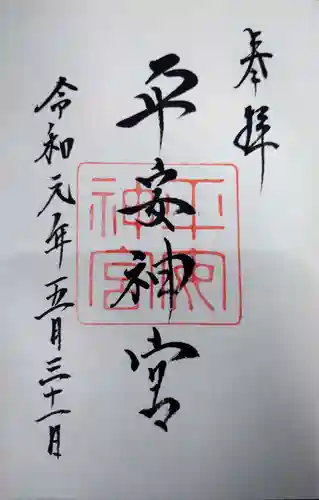 奉拝
平安神宮
平安神宮
令和元年五月三十一日